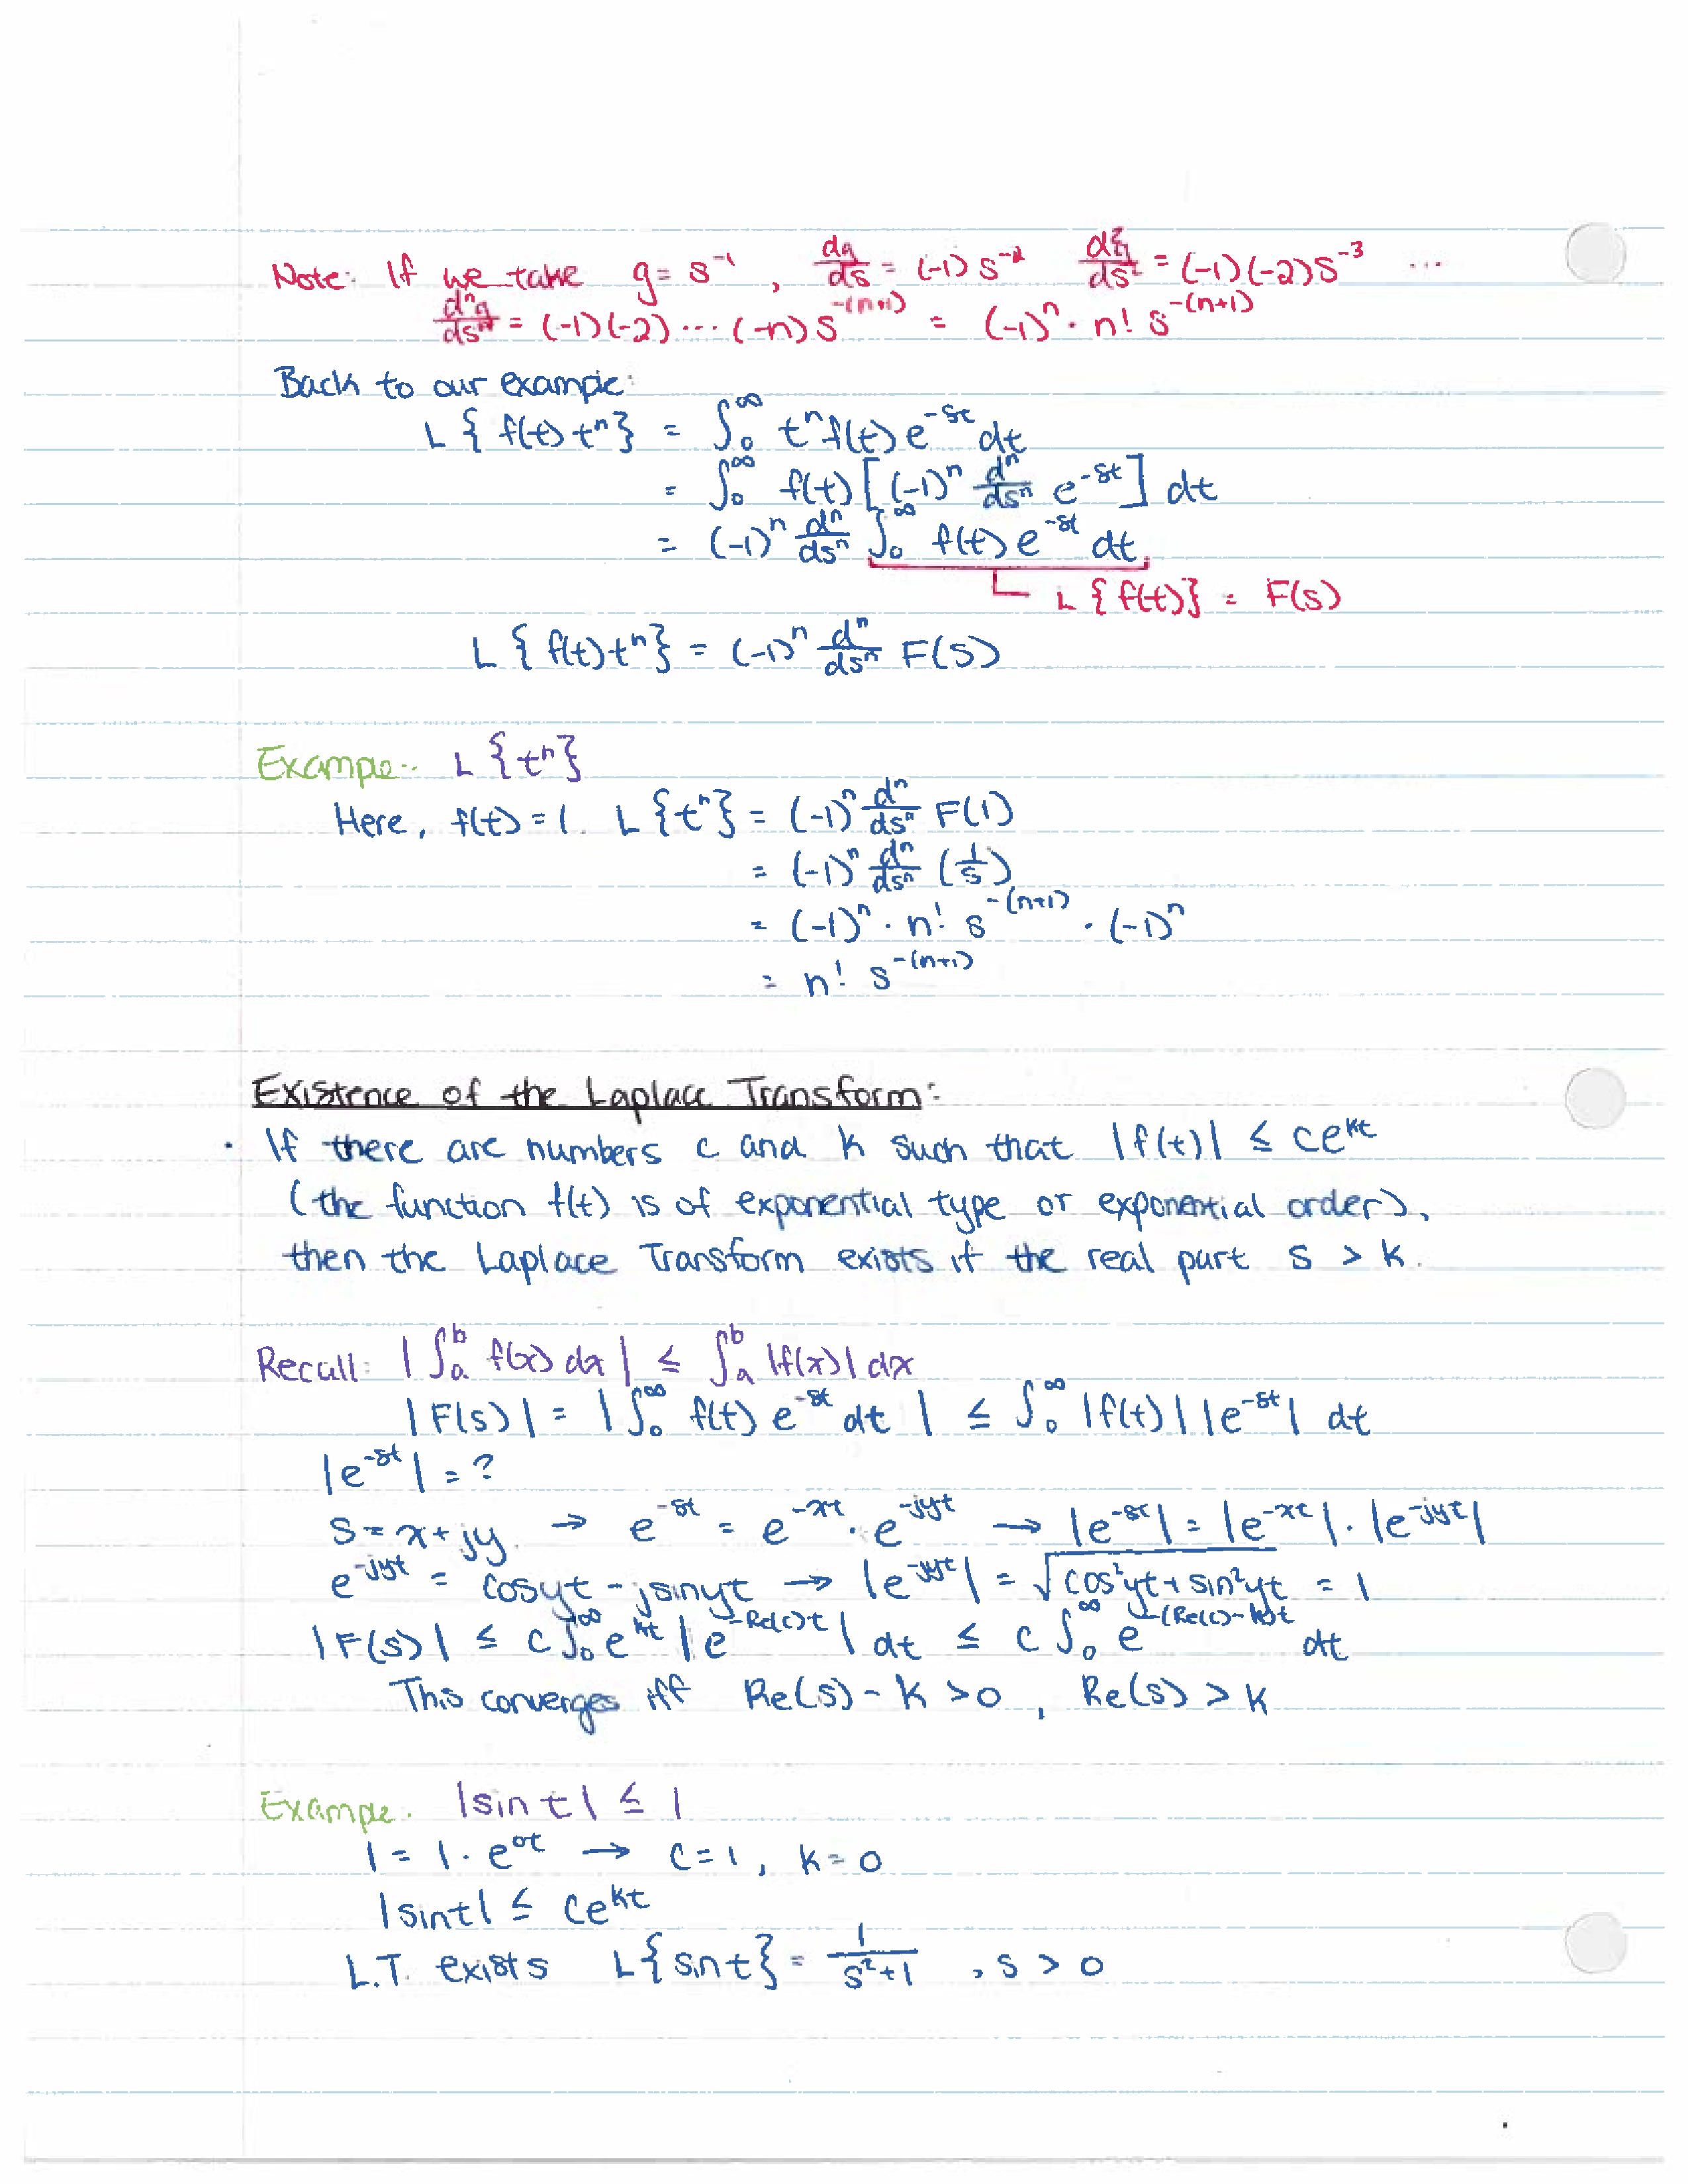 Note: If we take g = s⁻¹, dg/ds = (-1) s⁻² d²g/ds² = (-1)(-2)s⁻³ ...
dⁿg/dsⁿ = (-1)(-2)...(-n)s^-(n+1) = (-1)ⁿ · n! s^-(n+1)
Back to our example:
L{f(t)tⁿ} = ∫₀^∞ tⁿf(t)e^-st dt
= ∫₀^∞ f(t)[(-1)ⁿ dⁿ/dsⁿ e^-st] dt
= (-1)ⁿ dⁿ/dsⁿ ∫₀^∞ f(t)e^-st dt
L{f(t)} = F(s)
L{f(t)tⁿ} = (-1)ⁿ dⁿ/dsⁿ F(s)
Example: L{tⁿ}
Here, f(t)=1. L{tⁿ} = (-1)ⁿ dⁿ/dsⁿ F(1)
= (-1)ⁿ dⁿ/dsⁿ (1/s)
= (-1)ⁿ · n! s^-(n+1) · (-1)ⁿ
= n! s^-(n+1)
Existence of the Laplace Transform:
· If there are numbers c and k such that |f(t)| ≤ ce^kt
(the function f(t) is of exponential type or exponential order),
then the Laplace Transform exists if the real part s > k.
Recall: |∫ₐᵇ f(x) dx| ≤ ∫ₐᵇ |f(x)| dx
|F(s)| = |∫₀^∞ f(t) e^-st dt| ≤ ∫₀^∞ |f(t)||e^-st| dt
|e^-st| = ?
s = x + jy → e^-st = e^-xt · e^-jyt → |e^-st| = |e^-xt| · |e^-jyt|
e^-jyt = cosyt - jsinyt → |e^-jyt| = √(cos²yt + sin²yt) = 1
|F(s)| ≤ c∫₀^∞ e^kt |e^-Re(s)t| dt ≤ c∫₀^∞ e^-(Re(s)-k)t dt
This converges iff Re(s) - k > 0, Re(s) > k
Example: |sin t| ≤ 1
1 = 1 · e^0t → c=1, k=0
|sint| ≤ ce^kt
L.T. exists L{sint} = 1/(s²+1), s > 0